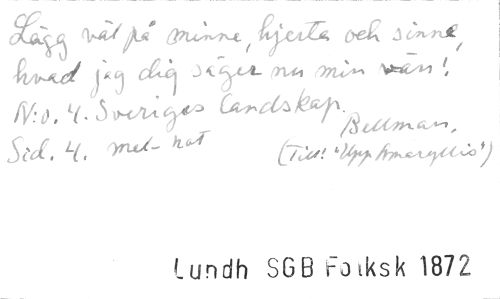 Lägg väl på minne, hjerta och sinne,
hvad jag dig säger nu min vän!
N:o. 4. Sveriges landskap.
Bellman.
Sid. 4. mel-not
(Till: "Upp Amaryllis")
Lundh SGB Folksk 1872